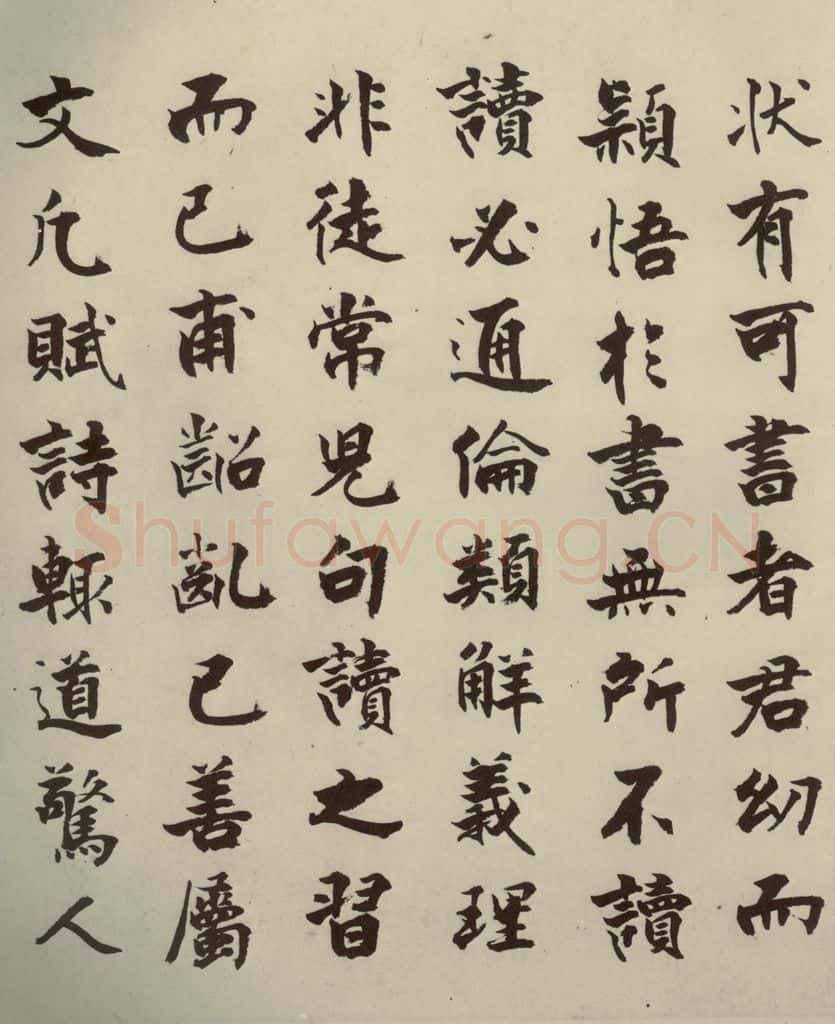 状有可書者君幼而
穎悟於書無所不讀
讀必通倫類解義理
非徒常児句讀之習
而已甫齠齔已善屬
文凡賦詩輙道驚人
Shufawang.CN